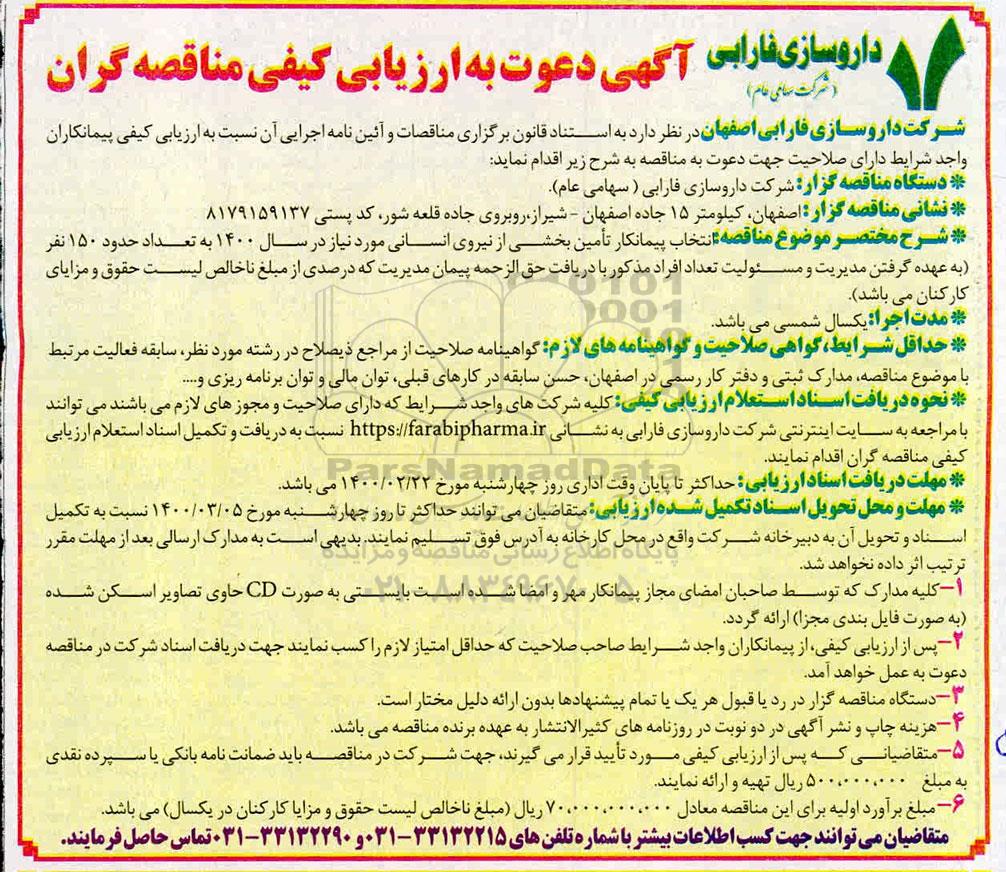 داروسازی فارابی
(شرکت سهامی عام)
آگهی دعوت به ارزیابی کیفی مناقصه گران
شرکت داروسازی فارابی اصفهان در نظر دارد به استناد قانون برگزاری مناقصات و آئین نامه اجرایی آن نسبت به ارزیابی کیفی پیمانکاران
واجد شرایط دارای صلاحیت جهت دعوت به مناقصه به شرح زیر اقدام نماید:
* دستگاه مناقصه گزار: شرکت داروسازی فارابی ( سهامی عام).
* نشانی مناقصه گزار: اصفهان، کیلومتر ۱۵ جاده اصفهان - شیراز،روبروی جاده قلعه شور، کد پستی ۸۱۷۹۱۵۹۱۳۷
* شرح مختصر موضوع مناقصه: انتخاب پیمانکار تأمین بخشی از نیروی انسانی مورد نیاز در سال ۱۴۰۰ به تعداد حدود ۱۵۰ نفر
(به عهده گرفتن مدیریت و مسئولیت تعداد افراد مذکور با دریافت حق الزحمه پیمان مدیریت که درصدی از مبلغ ناخالص لیست حقوق و مزایای
کارکنان می باشد).
* مدت اجرا: یکسال شمسی می باشد.
* حداقل شرایط، گواهی صلاحیت و گواهینامه های لازم: گواهینامه صلاحیت از مراجع ذیصلاح در رشته مورد نظر، سابقه فعالیت مرتبط
با موضوع مناقصه، مدارک ثبتی و دفتر کار رسمی در اصفهان، حسن سابقه در کارهای قبلی، توان مالی و توان برنامه ریزی و....
* نحوه دریافت اسناد استعلام ارزیابی کیفی: کلیه شرکت های واجد شرایط که دارای صلاحیت و مجوز های لازم می باشند می توانند
با مراجعه به سایت اینترنتی شرکت داروسازی فارابی به نشانی https://farabipharma.ir نسبت به دریافت و تکمیل اسناد استعلام ارزیابی
کیفی مناقصه گران اقدام نمایند.
ParsNamadData
* مهلت دریافت اسناد ارزیابی: حداکثر تا پایان وقت اداری روز چهارشنبه مورخ ۱۴۰۰/۰۲/۲۲ می باشد.
* مهلت و محل تحویل اسناد تکمیل شده ارزیابی: متقاضیان می توانند حداکثر تا روز چهارشنبه مورخ ۱۴۰۰/۰۳/۰۵ نسبت به تکمیل
اسناد و تحویل آن به دبیرخانه شرکت واقع در محل کارخانه به آدرس فوق تسلیم نمایند. بدیهی است به مدارک ارسالی بعد از مهلت مقرر
پایگاه اطلاع رسانی مناقصه و مزایده
ترتیب اثر داده نخواهد شد.
۰۲۱-۸۸۳۴۹۶۷۰-۵
۱-کلیه مدارک که توسط صاحبان امضای مجاز پیمانکار مهر و امضا شده است بایستی به صورت CD حاوی تصاویر اسکن شده
(به صورت فایل بندی مجزا) ارائه گردد.
۲-پس از ارزیابی کیفی، از پیمانکاران واجد شرایط صاحب صلاحیت که حداقل امتیاز لازم را کسب نمایند جهت دریافت اسناد شرکت در مناقصه
دعوت به عمل خواهد آمد.
۳-دستگاه مناقصه گزار در رد یا قبول هر یک یا تمام پیشنهادها بدون ارائه دلیل مختار است.
۴-هزینه چاپ و نشر آگهی در دو نوبت در روزنامه های کثیرالانتشار به عهده برنده مناقصه می باشد.
۵-متقاضیانی که پس از ارزیابی کیفی مورد تأیید قرار می گیرند، جهت شرکت در مناقصه باید ضمانت نامه بانکی یا سپرده نقدی
به مبلغ ۵۰۰,۰۰۰,۰۰۰ ریال تهیه و ارائه نمایند.
۶-مبلغ برآورد اولیه برای این مناقصه معادل ۷۰,۰۰۰,۰۰۰,۰۰۰ ریال (مبلغ ناخالص لیست حقوق و مزایا کارکنان در یکسال) می باشد.
متقاضیان می توانند جهت کسب اطلاعات بیشتر با شماره تلفن های ۳۳۱۳۲۲۱۵-۰۳۱ و ۳۳۱۳۲۲۹۰-۰۳۱ تماس حاصل فرمایند.